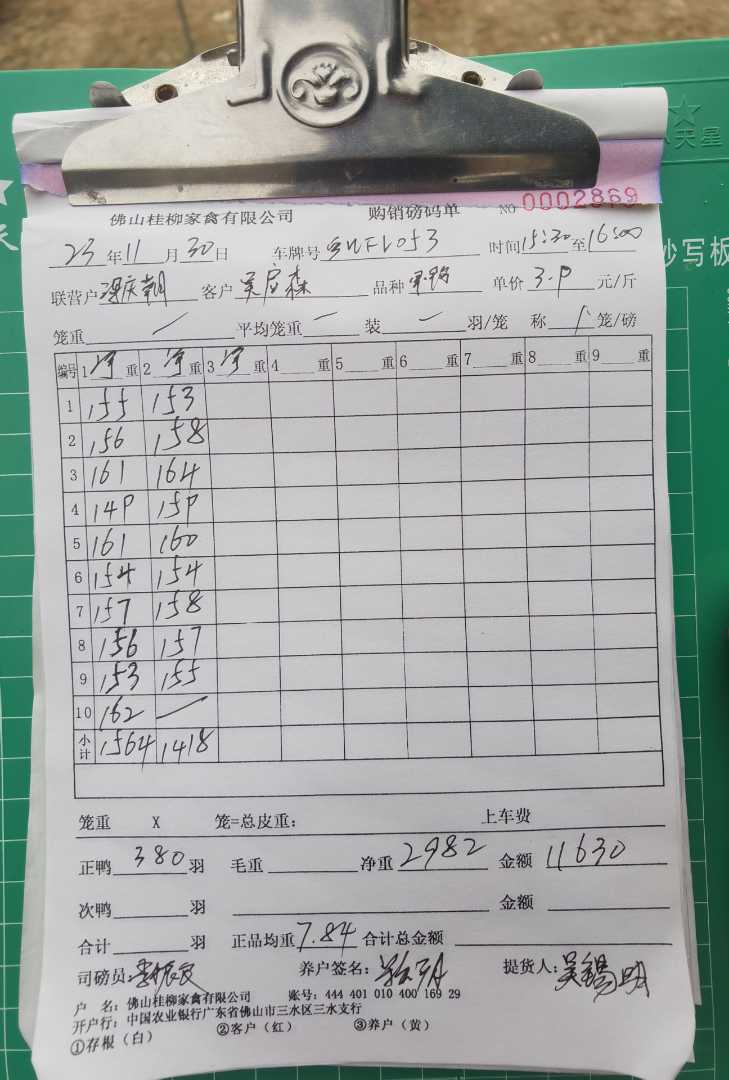 天星
佛山桂柳家禽有限公司 购销磅码单 NO 0002869
23年11月30日 车牌号 时间15:30至16:00
抄写板
联营户 客户 吴启森 品种 单价3.9元/斤
笼重 / 平均笼重 — 装 — 羽/笼 称 笼/磅
编号 1净重 2净重 3净重 4重 5重 6重 7重 8重 9重
1 155 153
2 156 158
3 161 164
4 149 159
5 161 160
6 154 154
7 157 158
8 156 157
9 153 155
10 162 —
小计 1564 1418
笼重 X 笼=总皮重: 上车费
正鸭 380 羽 毛重 净重 2982 金额 11630
次鸭 羽 金额
合计 羽 正品均重 7.84 合计总金额
司磅员: 养户签名: 提货人: 吴锡明
户 名: 佛山桂柳家禽有限公司 账号: 444 401 010 400 169 29
开户行: 中国农业银行广东省佛山市三水区三水支行
①存根(白) ②客户(红) ③养户(黄)